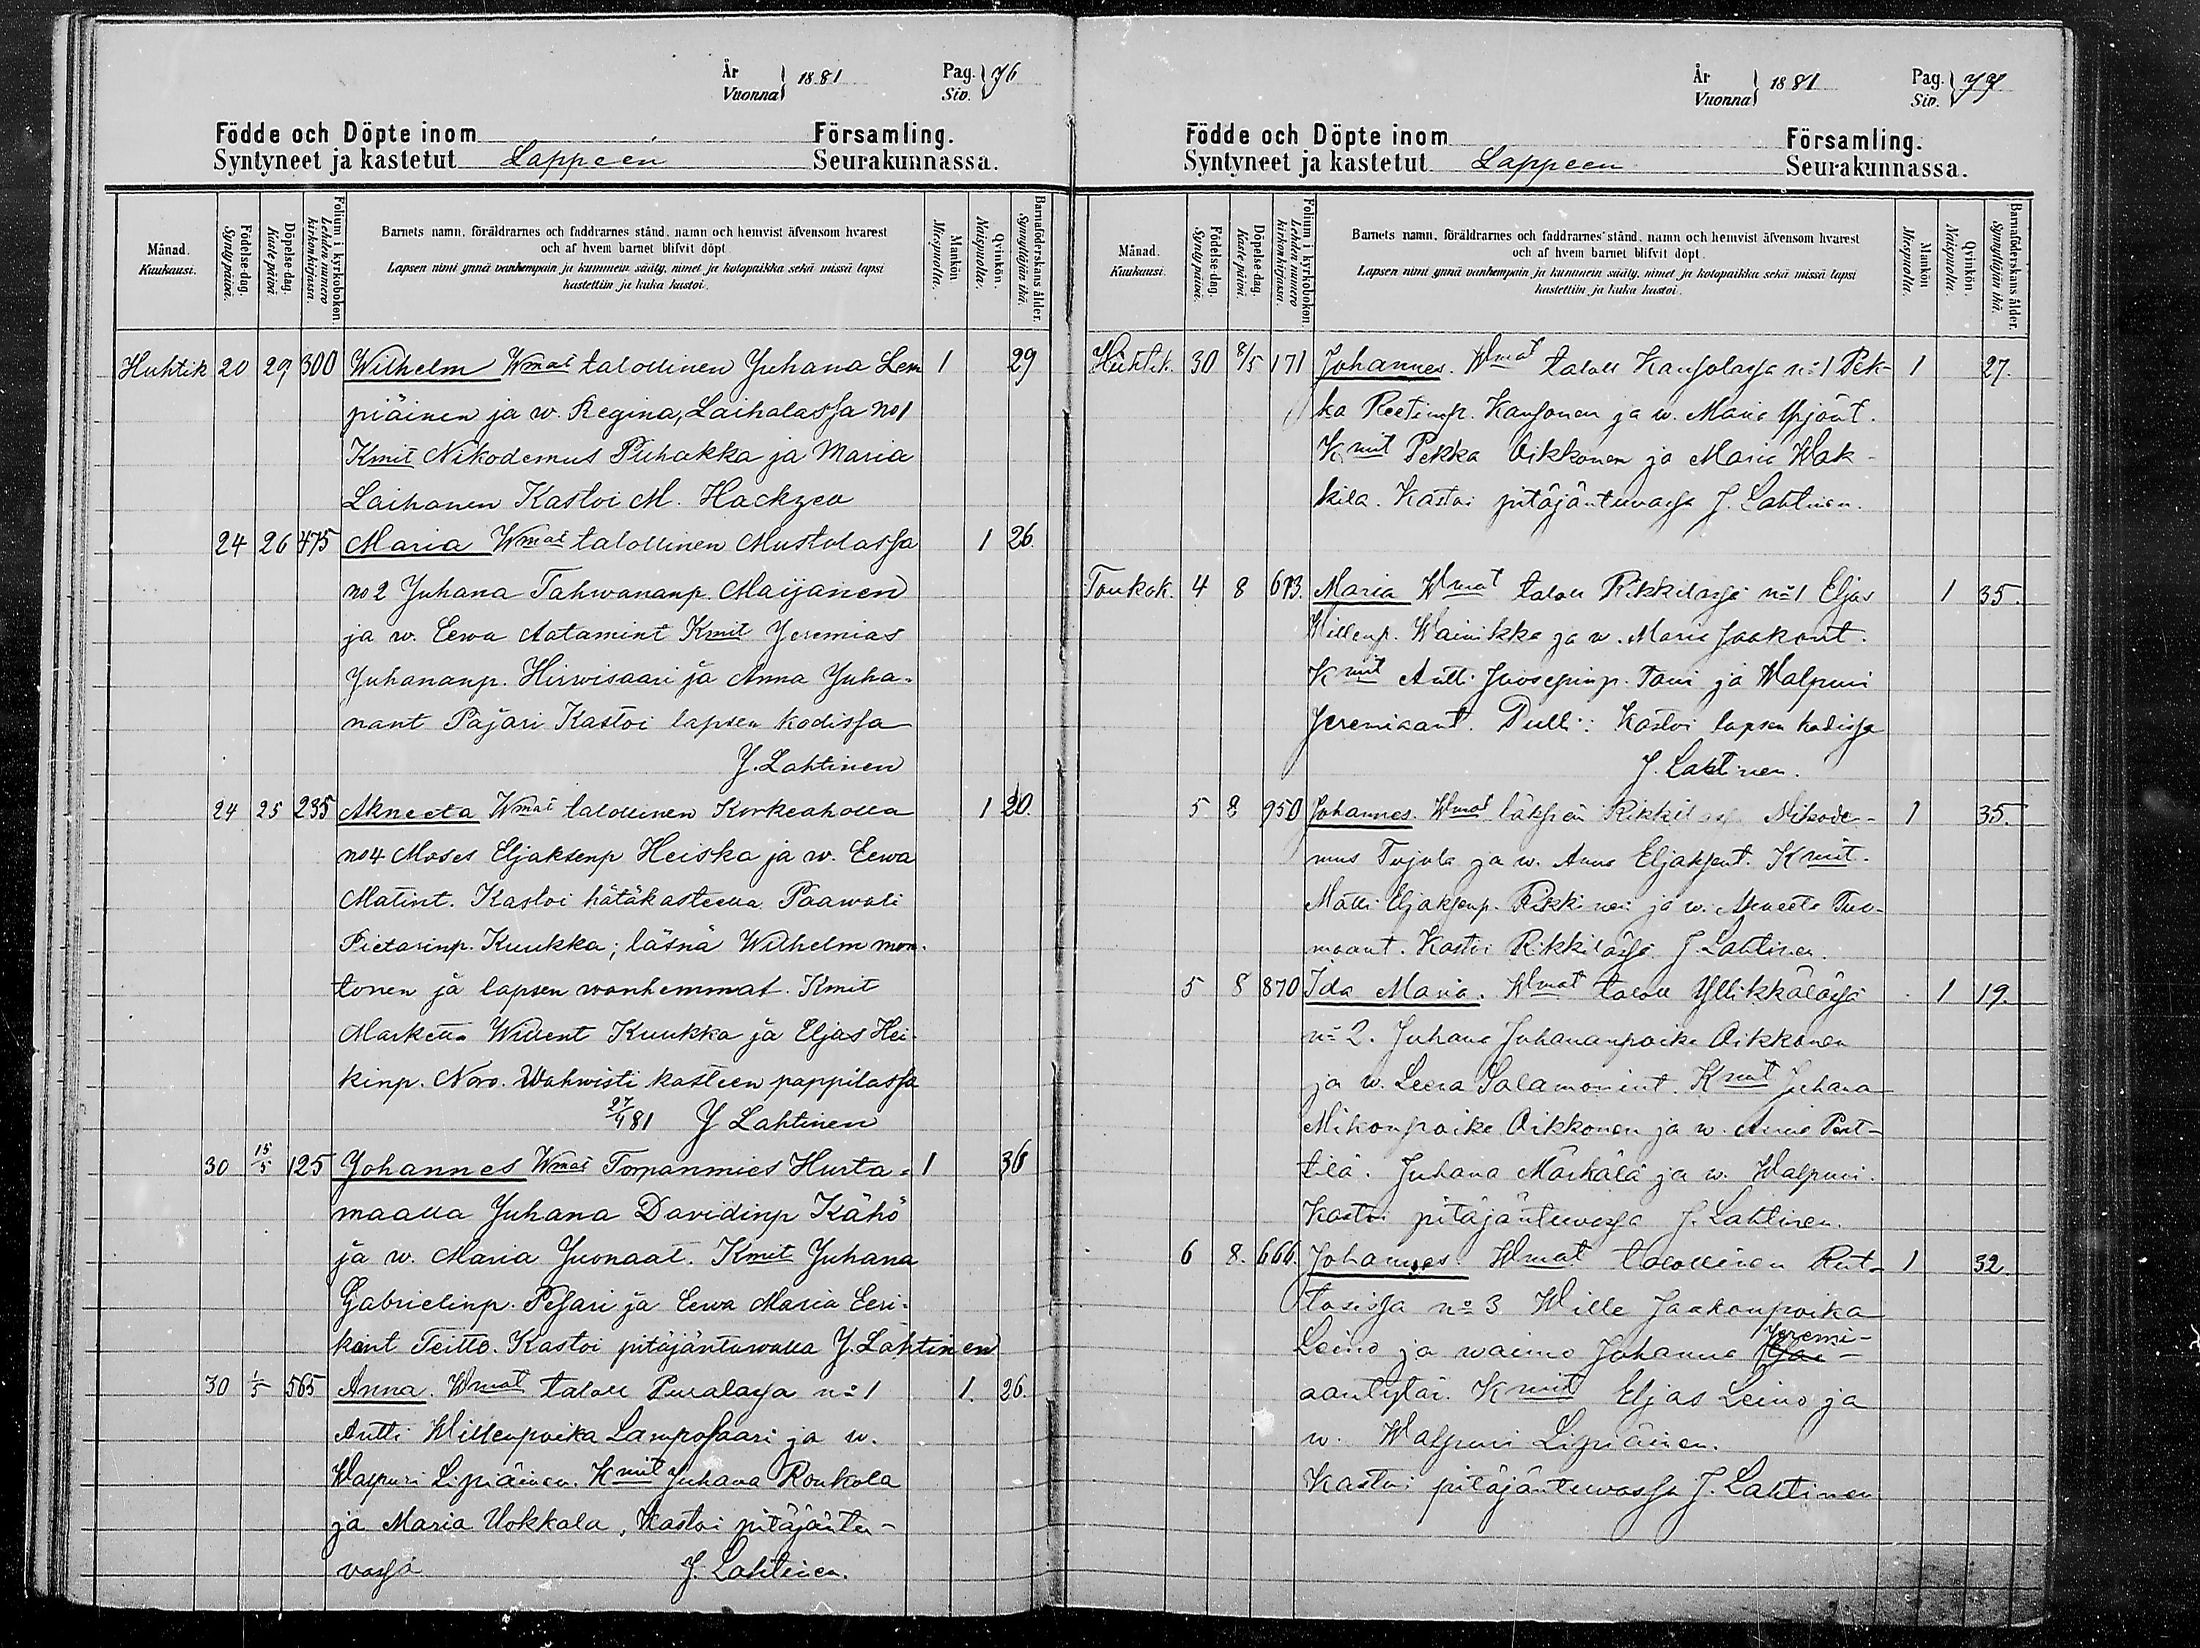 År Vuonna } 1881 Pag. Siv. } 76
Födde och Döpte inom Församling.
Syntyneet ja kastetut Lappeen Seurakunnassa.
Månad. Kuukausi.
Födelse-dag. Synty päivä.
Döpelse-dag. Kaste päivä.
Folium i kyrkoboken. Lehden numero kirkonkirjassa.
Barnets namn, föräldrarnes och faddrarnes stånd, namn och hemvist äfvensom hvarest
och af hvem barnet blifvit döpt.
Lapsen nimi ynnä vanhempain ja kummein sääty, nimet ja kotopaikka sekä missä lapsi
kastettiin ja kuka kastoi.
Mankön. Miespuolta.
Qvinkön. Naispuolta.
Barnaföderskans ålder. Synnyttäjän ikä.
Huhtik 20 29 300 Wilhelm Wmat talollinen Juhana Lem 1 29
piäinen ja w. Regina, Laihalassa no 1
Kmit Nikodemus Puhakka ja Maria
Laihanen Kastoi M. Hackzell
24 26 475 Maria Wmat talollinen Mustolassa 1 26.
no 2 Juhana Tahwananp. Maijanen
ja w. Eewa Aatamint Kmit Jeremias
Juhananp. Hirwisaari ja Anna Juha-
nant Pajari Kastoi lapsen kodissa
J. Lahtinen
24 25 235 Akneeta Wmat talollinen Korkeaholla 1 20.
no 4 Moses Eljaksenp Heiska ja w. Eewa
Matint. Kastoi hätäkasteella Paawali
Pietarinp. Kuukka; läsnä Wilhelm mon-
tonen ja lapsen wanhemmat. Kmit
Marketta Willent Kuukka ja Eljas Hei-
kinp. Noro. Wahwisti kasteen pappilassa
27/4 81 J Lahtinen
30 15/5 125 Johannes Wmat Torpanmies Hurta- 1 36
maalla Juhana Davidinp Kähö
ja w. Maria Juonaat. Kmit Juhana
Gabrielinp. Pesari ja Eewa Maria Eeri-
kint Teitto. Kastoi pitäjäntuwalla J. Lahtinen
30 1/5 565 Anna. Wmat taloll Puralassa no 1 1. 26.
Antti Willenpoika Lamposaari ja w.
Walpuri Lipiäinen. Kmit Juhana Roukola
ja Maria Uokkola. Kastoi pitäjäntu-
vassa J. Lahtinen.
År Vuonna } 1881 Pag. Siv. } 77
Födde och Döpte inom Församling.
Syntyneet ja kastetut Lappeen Seurakunnassa.
Månad. Kuukausi.
Födelse-dag. Synty päivä.
Döpelse-dag. Kaste päivä.
Folium i kyrkoboken. Lehden numero kirkonkirjassa.
Barnets namn, föräldrarnes och faddrarnes stånd, namn och hemvist äfvensom hvarest
och af hvem barnet blifvit döpt.
Lapsen nimi ynnä vanhempain ja kummein sääty, nimet ja kotopaikka sekä missä lapsi
kastettiin ja kuka kastoi.
Mankön. Miespuolta.
Qvinkön. Naispuolta.
Barnaföderskans ålder. Synnyttäjän ikä.
Huhtik. 30 8/5 171 Johannes. Wmat taloll Kansolassa no 1 Pek- 1 27.
ka Reetinp. Kansonen ja w. Maria Yrjönt.
Kmit Pekka Oikkonen ja Maria Wak-
kila. Kastoi pitäjäntuvassa J. Lahtinen.
Toukok. 4 8 673. Maria Wmat taloll Rikkilässä no 1 Eljas 1 35.
Willenp. Wainikka ja w. Maria Jaakont.
Kmit Antti Juosepinp. Tani ja Walpuri
Jeremiaant. Pulli: Kastoi lapsen kodissa
J. Lahtinen.
5 8 950 Johannes. Wmat läksiäi Rikkilässä Nikode- 1 35.
mus Tujula ja w. Anna Eljaksent. Kmit.
Matti Eljaksenp. Rikkinen ja w. Akneeta Tuo-
maant. Kastoi Rikkilässä J. Lahtinen.
5 8 870 Ida Maria. Wmat taloll Yllikkälässä 1 19.
no 2. Juhana Juhananpoika Oikkonen
ja w. Leena Salamonint. Kmit Juhana
Mikonpoika Oikkonen ja w. Anna Pent-
tilä. Juhana Märkälä ja w. Walpuri.
Kastoi pitäjäntuvassa J. Lahtinen.
6 8. 666. Johannes. Wmat talollinen Rut- 1 32.
tosissa no 3 Wille Jaakonpoika
Leino ja waimo Johanna Jeremi-
aantytär. Kmit Eljas Leino ja
w. Walpuri Lipiäinen.
Kastoi pitäjäntuwassa J. Lahtinen